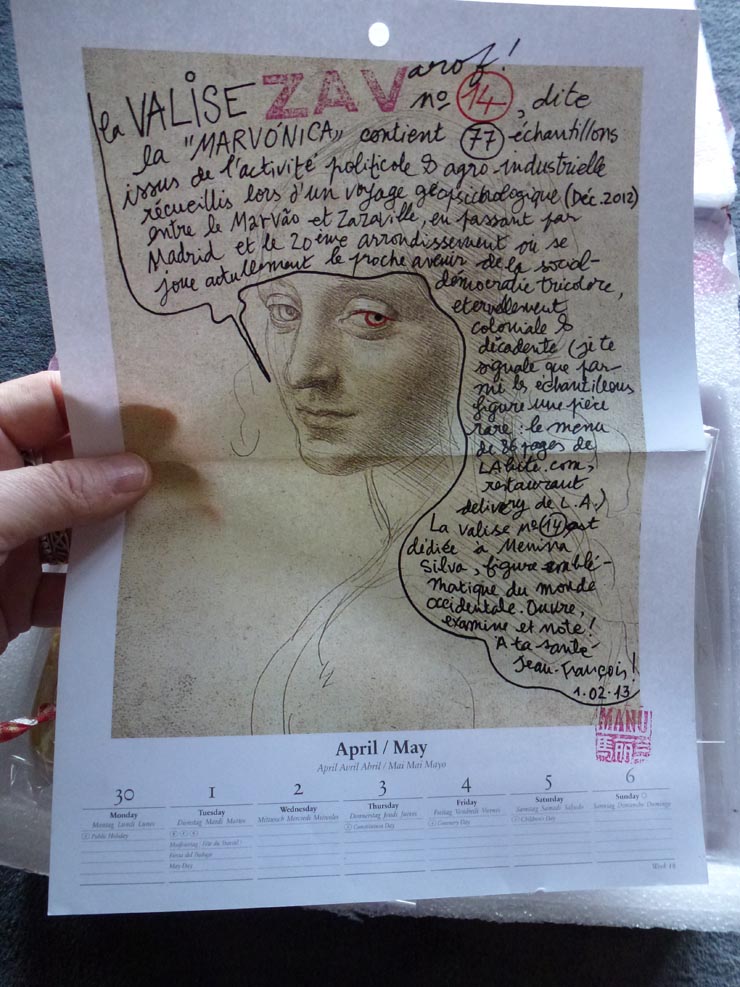 la VALISE ZAVarof!
nº 14, dite
la "MARVÓNICA" contient 77 échantillons
issus de l'activité politicole & agro-industrielle
récueillis lors d'un voyage géopsichologique (Déc. 2012)
entre le Marvão et Zazaville, en passant par
Madrid et le 20ème arrondissement où se
joue actullement le proche avenir de la social-
démocratie tricolore,
eternellement
coloniale &
décadente (je te
signale que par-
mi les échantillons
figure une pièce
rare : le menu
de 86 pages de
LAbite.com,
restaurant
delivery de L.A.)
La valise nº 14 est
dédiée à Menina
Silva, figure emblé-
matique du monde
occidentale. Ouvre,
examine et note!
A ta santé
Jean-François!
1.02.13
MANU
April / May
April Avril Abril / Mai Mai Mayo
30 1 2 3 4 5 6
Monday Tuesday Wednesday Thursday Friday Saturday Sunday
Montag Lundi Lunes Dienstag Mardi Martes Mittwoch Mercredi Miércoles Donnerstag Jeudi Jueves Freitag Vendredi Viernes Samstag Samedi Sábado Sonntag Dimanche Domingo
Public Holiday Constitution Day Children's Day
Fête du Travail
May Day
Week 18